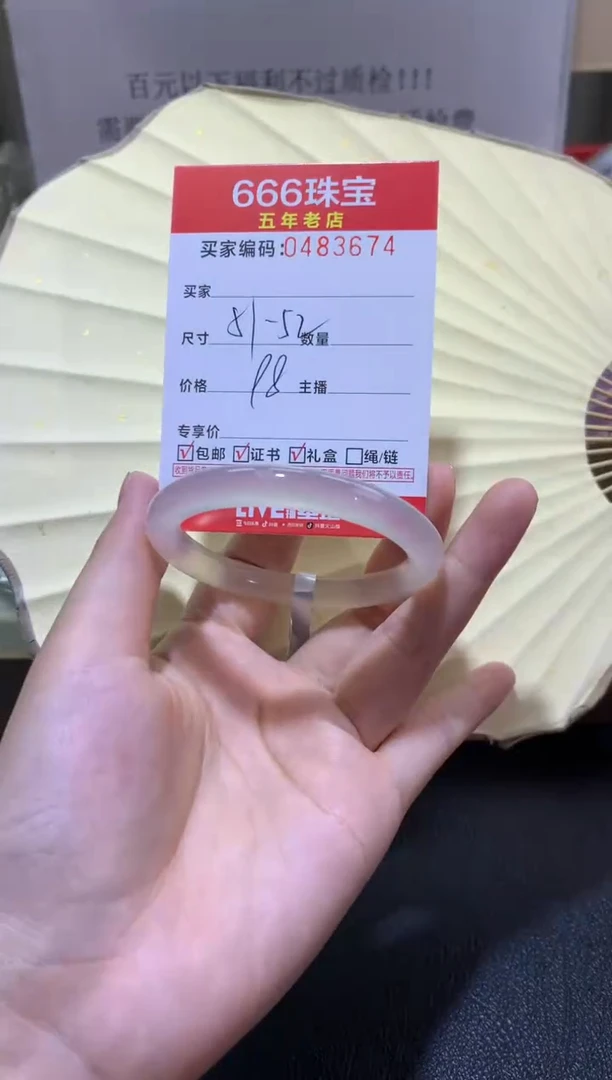 百元以下福利不过质检!!!
需
质检费
666珠宝
五年老店
买家编码:0483674
买家
尺寸 51-52 数量
价格 98 主播
专享价
包邮 证书 礼盒 绳/链
我们将不予以责任.
LIVE